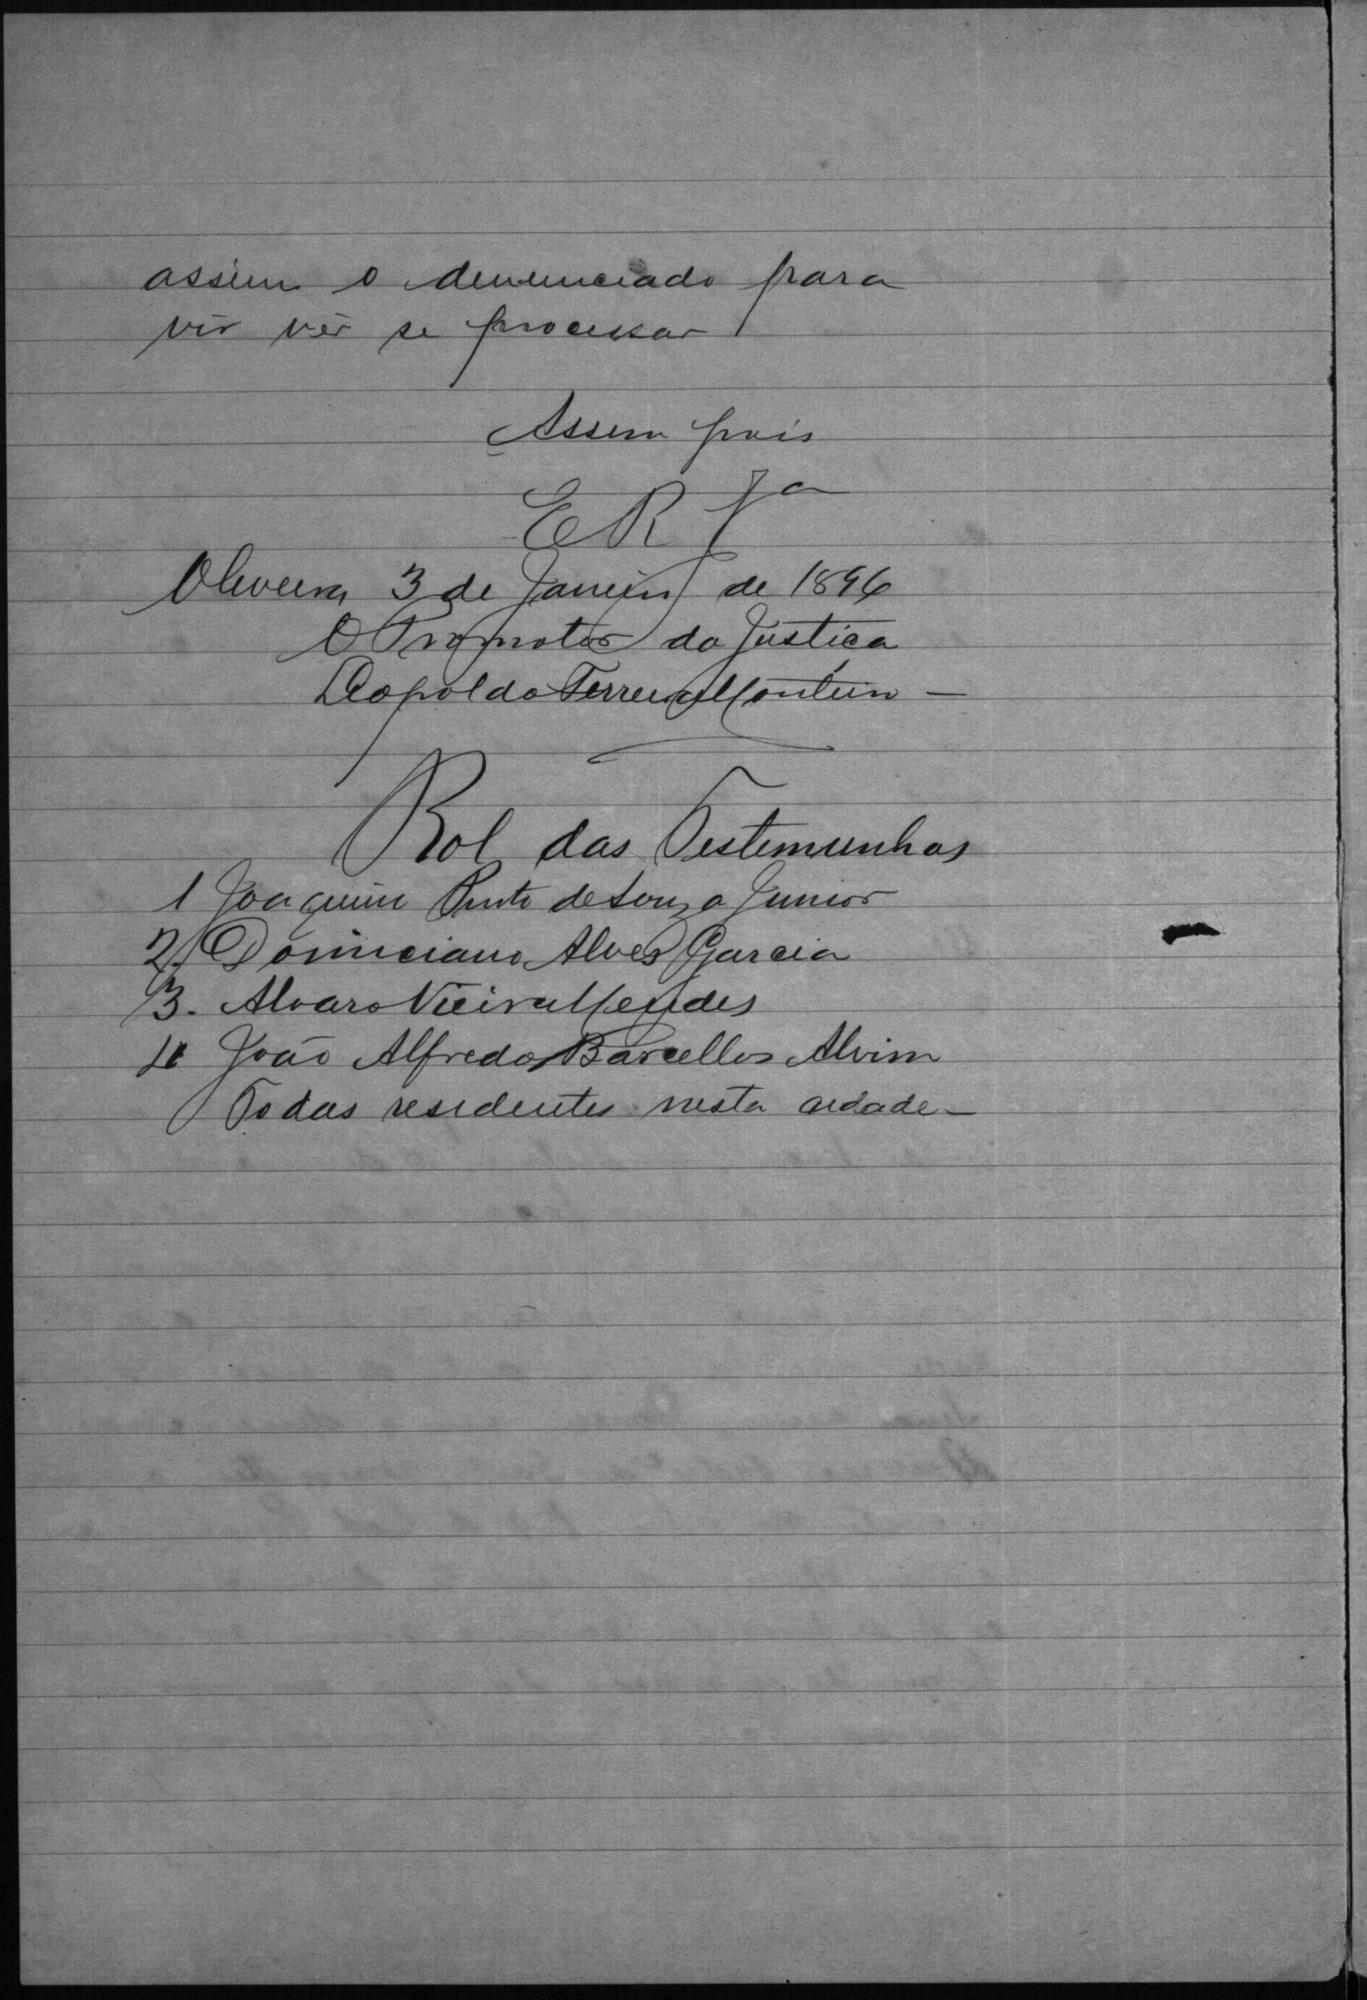 assim o denunciado para
vir vêr se processar
Assim pois
E R Jª
Oliveira 3 de Janeiro de 1896
O Promotor da Justiça
Leopoldo Ferreira Monteiro —
Rol das Testemunhas
1 Joaquim Pinto de Souza Junior
2. Dominciano Alves Garcia
3. Alvaro Vieira Mendes
4 João Alfredo Barcellos Alvim
Todas residentes nesta cidade —